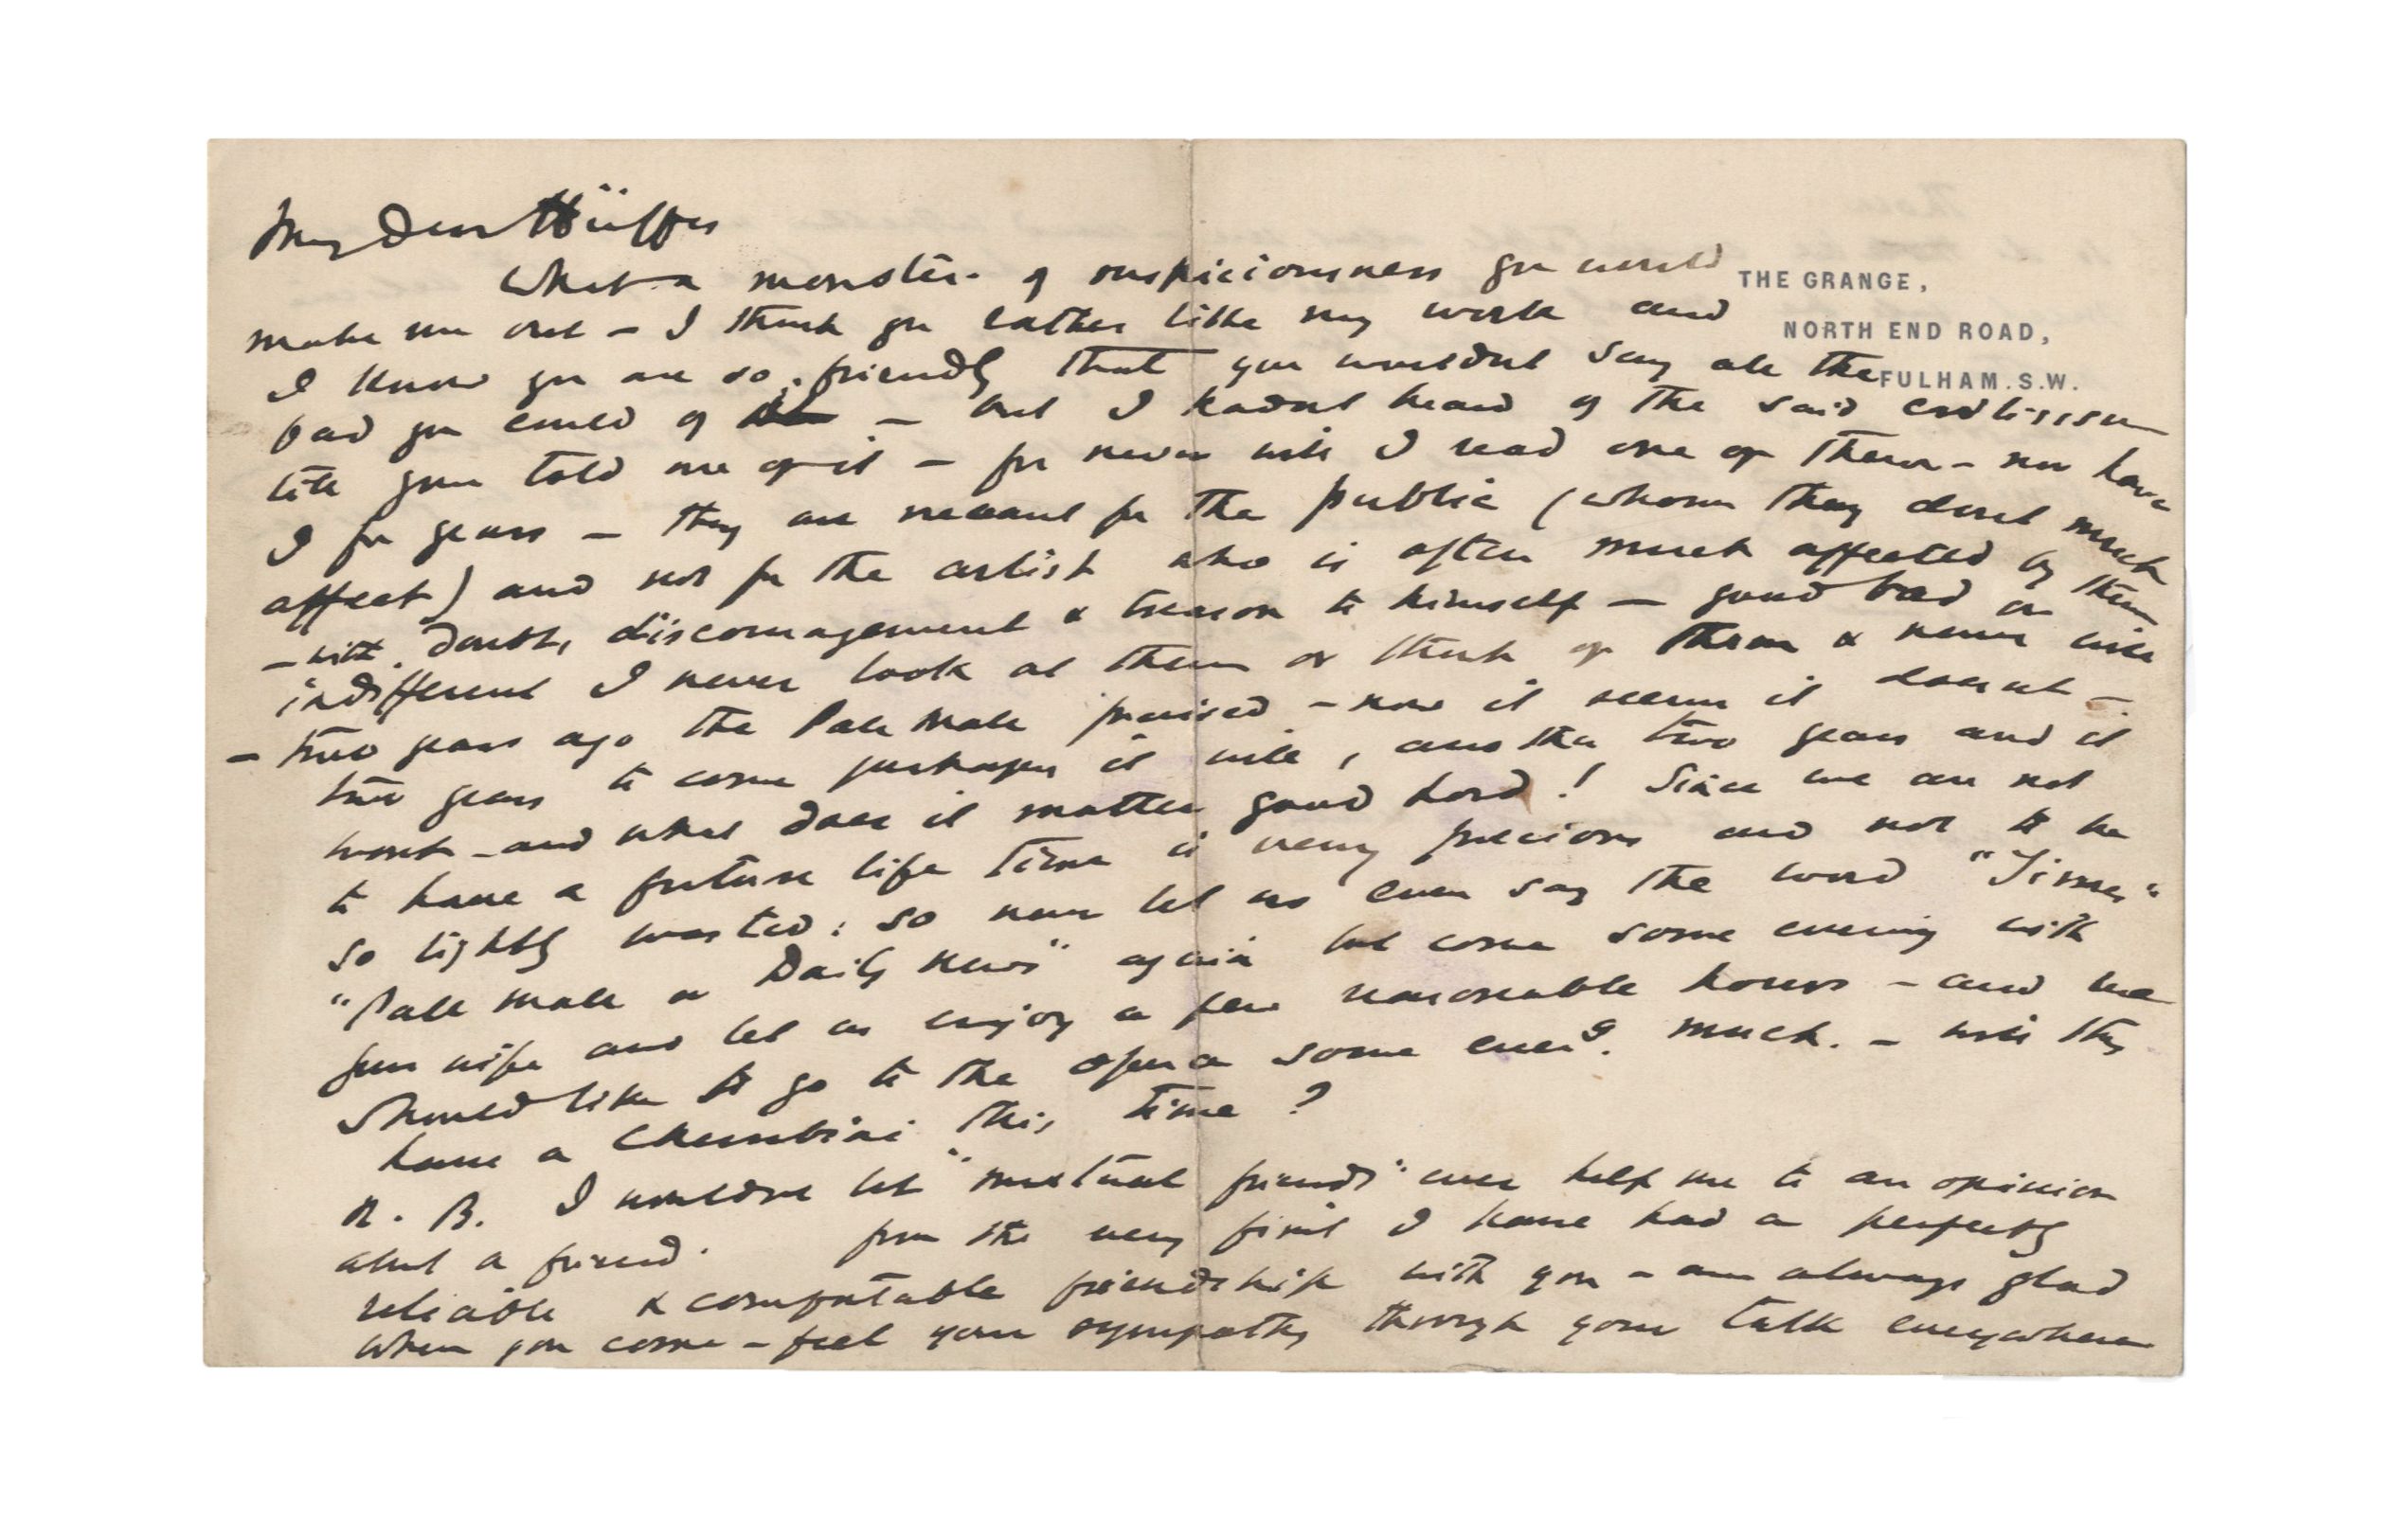 THE GRANGE,
NORTH END ROAD,
FULHAM. S.W.
My dear Hüffer
What a monster of suspiciousness you would
make me out – I think you rather like my work and
I know you are so friendly that you wouldnt say all the
bad you could of it – but I hadnt heard of the said criticism
till you told me of it – for never will I read one of them – nor have
I for years – they are meant for the public (whom they dont much
affect) and not for the artist who is often much affected by them
– with doubt, discouragement & treason to himself – good bad or
indifferent I never look at them or think of them & never will
– two years ago the Pall Mall praised – now it seems it doesnt –
two years to come perhaps it will, another two years and it
wont – and what does it matter good Lord! Since we are not
to have a future life time is very precious and not to be
so lightly wasted: so never let us even say the word "Times"
"Pall Mall or Daily News" again but come some evening with
your wife and let us enjoy a few reasonable hours – and we
should like to go to the opera some eveng. much. – will they
have a Cherubini this time?
N. B. I wouldnt let "mutual friends" ever help me to an opinion
about a friend. from the very first I have had a perfectly
reliable & comfortable friendship with you – am always glad
when you come – feel your sympathy through your talk everywhere